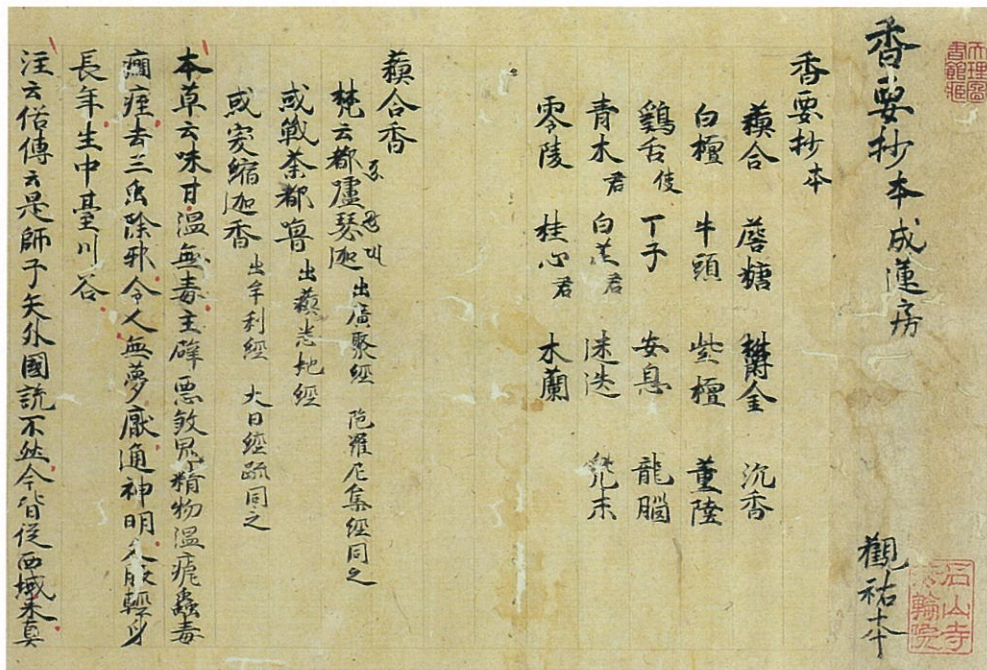 天理圖書館藏
香要抄本 成蓮房
觀祐本
石山寺輪院
香要抄本
蘓合 詹糖 欝金 沉香
白檀 牛頭 紫檀 薫陸
鷄舌使 丁子 安息 龍腦
青木君 白芷君 迷迭 兜末
零陵 桂心君 木蘭
蘓合香
梵云都嚧瑟迦 出廣聚經 陁羅尼集經同之
或戰荼都嚕 出蘓悉地經
或窣縮迦香 出牟利經 大日經疏同之
本草云味甘溫無毒主辟惡煞鬼精物溫瘧蠱毒
癎痓去三虫除邪令人無夢厭通神明久服輕身
長年生中臺川谷
注云俗傳云是師子矢外國説不然今皆從西域来真